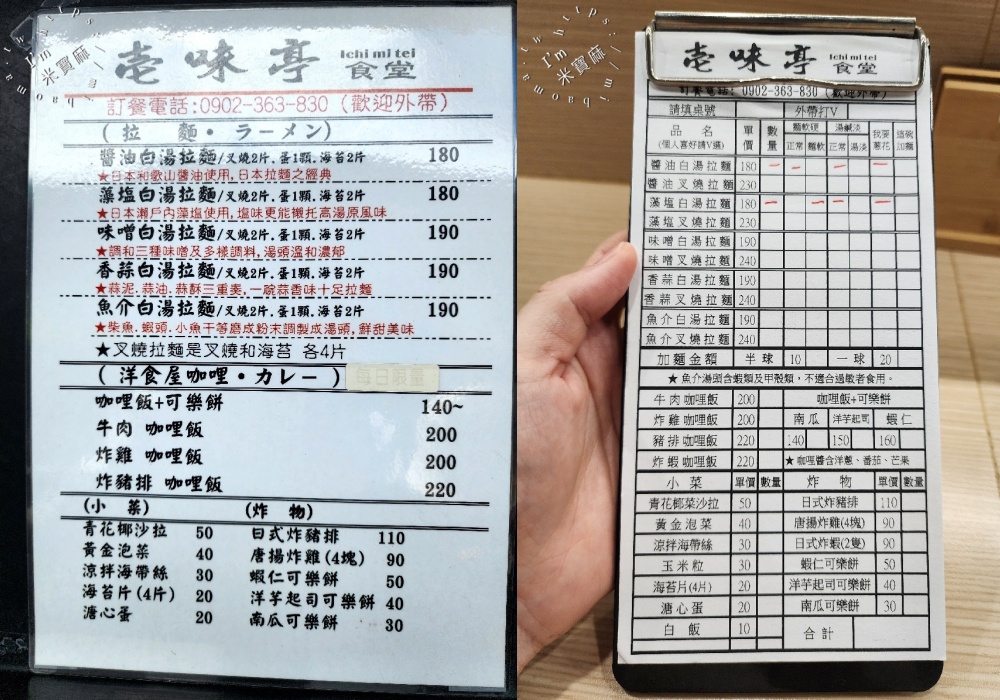 壱味亭 Ichi mi tei 食堂
訂餐電話:0902-363-830 (歡迎外帶)
(拉 麵・ラーメン)
醬油白湯拉麵/叉燒2片.蛋1顆.海苔2片 180
★日本和歌山醬油使用,日本拉麵之經典
藻塩白湯拉麵/叉燒2片.蛋1顆.海苔2片 180
★日本瀨戶內藻塩使用,塩味更能襯托高湯原風味
味噌白湯拉麵/叉燒2片.蛋1顆.海苔2片 190
★調和三種味噌及多樣調料,湯頭溫和濃郁
香蒜白湯拉麵/叉燒2片.蛋1顆.海苔2片 190
★蒜泥.蒜油.蒜酥三重奏,一碗蒜香味十足拉麵
魚介白湯拉麵/叉燒2片.蛋1顆.海苔2片 190
★柴魚.蝦頭.小魚干等磨成粉末調製成湯頭,鮮甜美味
★叉燒拉麵是叉燒和海苔 各4片
(洋食屋咖哩・カレー) 每日限量
咖哩飯+可樂餅 140~
牛肉 咖哩飯 200
炸雞 咖哩飯 200
炸豬排 咖哩飯 220
(小 菜) (炸 物)
青花椰沙拉 50 日式炸豬排 110
黃金泡菜 40 唐揚炸雞(4塊) 90
涼拌海帶絲 30 蝦仁可樂餅 50
海苔片(4片) 20 洋芋起司可樂餅 40
溏心蛋 20 南瓜可樂餅 30
壱味亭 Ichi mi tei 食堂
訂餐電話:0902-363-830 (歡迎外帶)
請填桌號 外帶打V
品 名 (個人喜好請V選) 單價 數量 麵軟硬 正常 麵軟 湯鹹淡 正常 湯淡 我要蔥花 這碗加麵
醬油白湯拉麵 180
醬油叉燒拉麵 230
藻塩白湯拉麵 180
藻塩叉燒拉麵 230
味噌白湯拉麵 190
味噌叉燒拉麵 240
香蒜白湯拉麵 190
香蒜叉燒拉麵 240
魚介白湯拉麵 190
魚介叉燒拉麵 240
加麵金額 半球 10 一球 20
★魚介湯頭含蝦類及甲殼類,不適合過敏者食用。
牛肉咖哩飯 200 咖哩飯+可樂餅
炸雞咖哩飯 200 南瓜 洋芋起司 蝦仁
豬排咖哩飯 220 140 150 160
炸蝦咖哩飯 220 ★咖哩醬含洋蔥、番茄、芒果
小菜 單價 數量 炸物 單價 數量
青花椰菜沙拉 50 日式炸豬排 110
黃金泡菜 40 唐揚炸雞(4塊) 90
涼拌海帶絲 30 日式炸蝦(2隻) 90
玉米粒 30 蝦仁可樂餅 50
海苔片(4片) 20 洋芋起司可樂餅 40
溏心蛋 20 南瓜可樂餅 30
白飯 10 合計
I'm 米寶麻
I'm 米寶麻